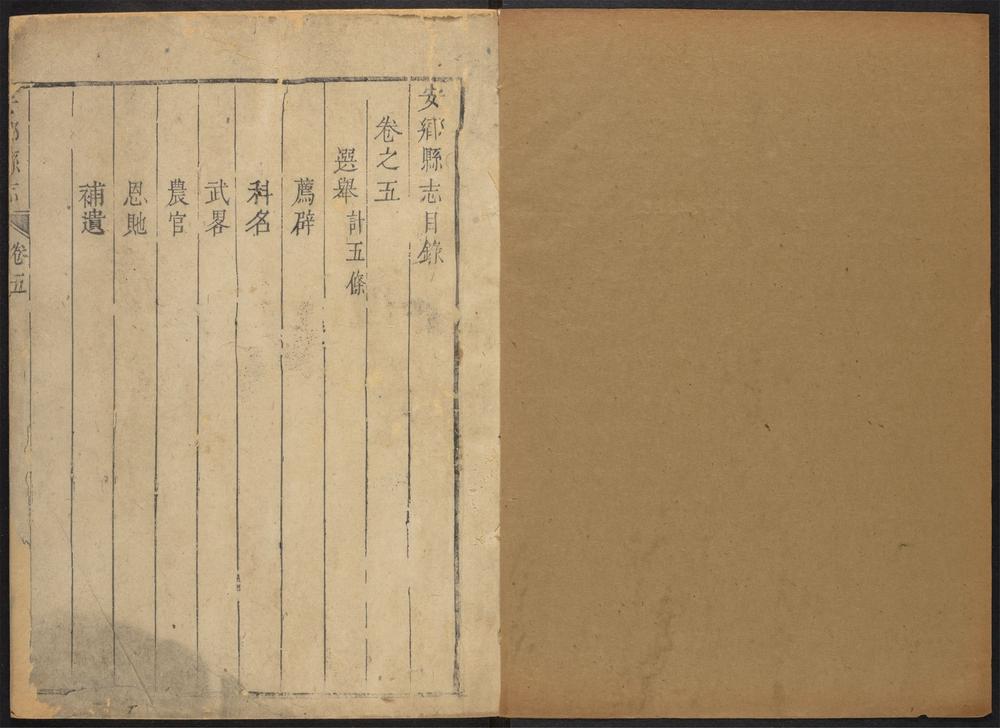 安鄉縣志目錄
卷之五
選舉計五條
薦辟
科名
武畧
農官
恩貤
補遺
卷五